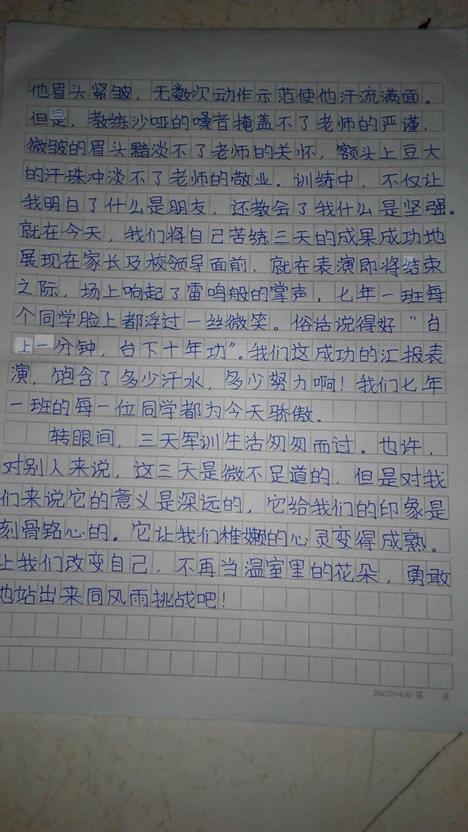 他眉头紧皱，无数次动作示范使他汗流满面。
但是，教练沙哑的嗓音掩盖不了老师的严谨，
微皱的眉头黯淡不了老师的关怀，额头上豆大
的汗珠冲淡不了老师的敬业。训练中，不仅让
我明白了什么是朋友，还教会了我什么是坚强。
就在今天，我们将自己苦练三天的成果成功地
展现在家长及校领导面前，就在表演即将结束
之际，场上响起了雷鸣般的掌声，七年一班每
个同学脸上都浮过一丝微笑。俗话说得好“台
上一分钟，台下十年功”。我们这成功的汇报表
演，饱含了多少汗水，多少努力啊！我们七年
一班的每一位同学都为今天骄傲．
转眼间，三天军训生活匆匆而过。也许，
对别人来说，这三天是微不足道的，但是对我
们来说它的意义是深远的，它给我们的印象是
刻骨铭心的。它让我们稚嫩的心灵变得成熟。
让我们改变自己，不再当温室里的花朵，勇敢
地站出来同风雨挑战吧！
20x20=400 第 页